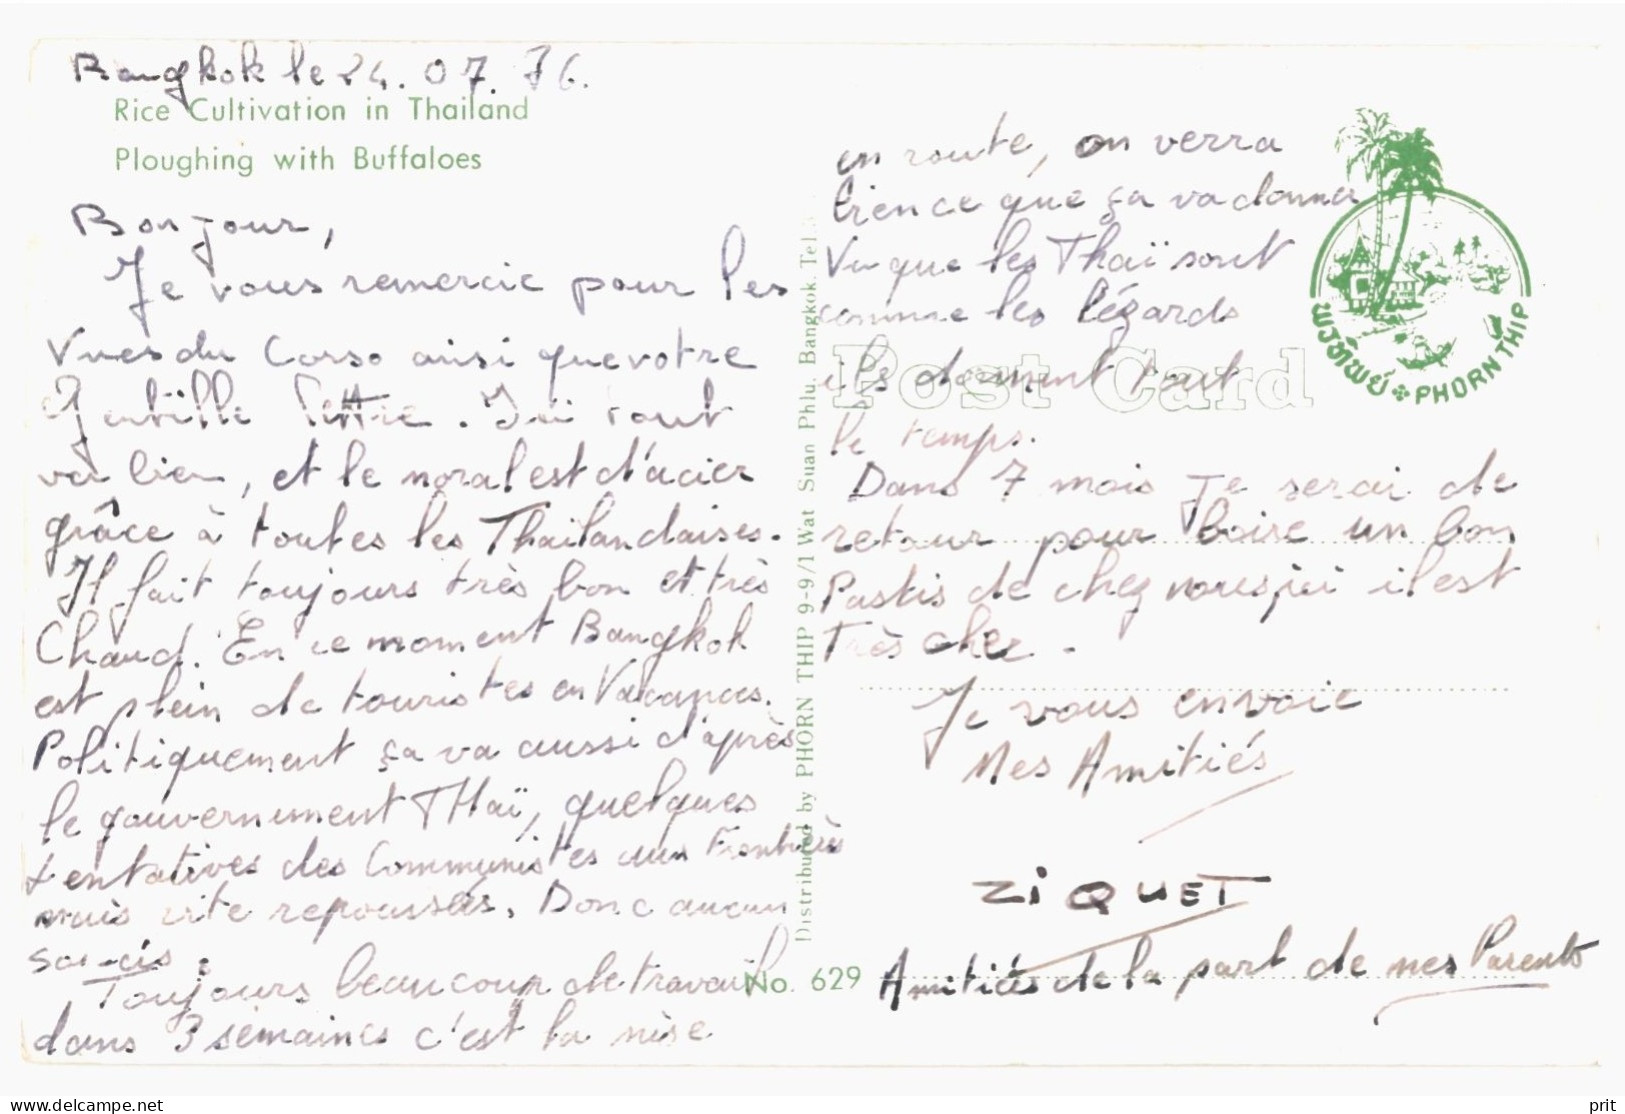 Bangkok le 24.07.76.
Rice Cultivation in Thailand
Ploughing with Buffaloes
Bonjour,
Je vous remercie pour les
Vues du Corso ainsi que votre
Gentille lettre. Ici tout
va bien, et le moral est d'acier
grâce à toutes les Thailandaises.
Il fait toujours très bon et très
Chaud. En ce moment Bangkok
est plein de touristes en Vacances.
Politiquement ça va aussi d'après
le gouvernement THaï, quelques
tentatives des Communistes aux Frontières
mais vite repoussés. Donc aucun
soucis.
Toujours beaucoup de travail
dans 3 semaines c'est la mise
en route, on verra
bien ce que ça va donner
Vu que les Thaï sont
comme les lézards
ils dorment tout
le temps.
Dans 7 mois Je serai de
retour pour boire un bon
Pastis de chez nous, ici il est
Très cher.
Je vous envoie
Mes Amitiés
ZiQUET
Amitiés de la part de mes Parents
Post Card
พรทิพย์ PHORN THIP
Distributed by PHORN THIP 9-9/1 Wat Suan Phlu. Bangkok. Tel.
No. 629
Bangkok on Delcampe.net
prit